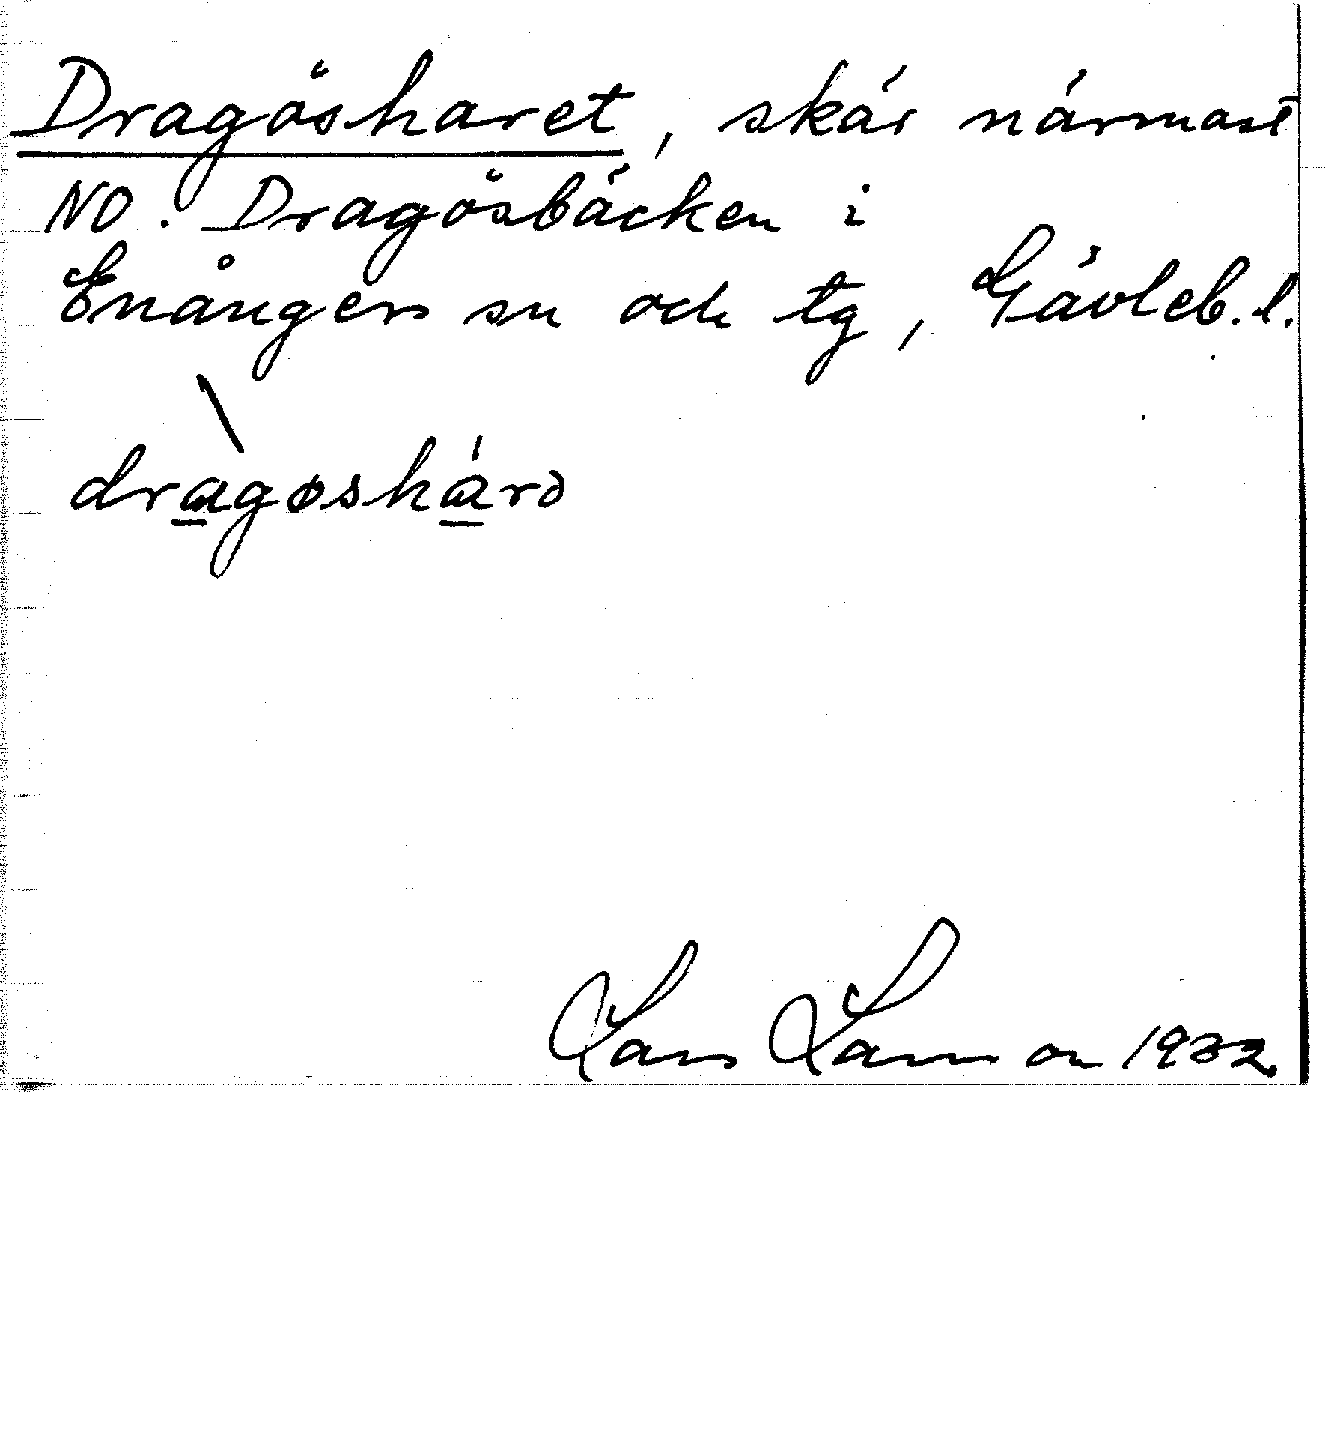 Dragösharet, skär närmast
NO. Dragösbäcken i
Enångers sn och tg, Gävleb. l.
dragøshárə
Lars Larsson 1932.